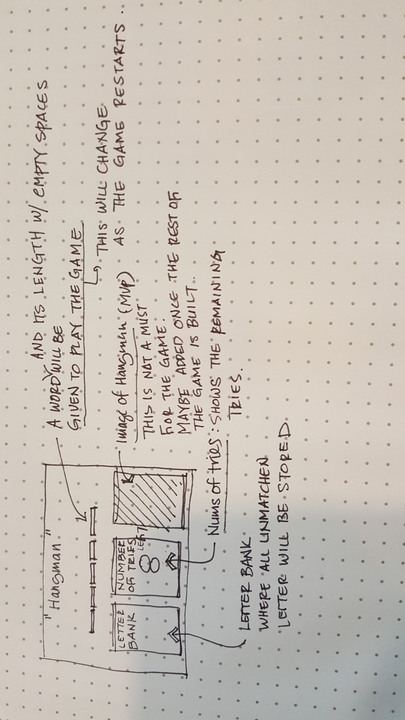 "Hangman"
LETTER
BANK
NUMBER
OF TRIES
LEFT
8
AND ITS LENGTH W/ EMPTY SPACES
A WORD WILL BE
GIVEN TO PLAY THE GAME
THIS WILL CHANGE
AS THE GAME RESTARTS..
Image of Hangman (MVP)
THIS IS NOT A MUST
FOR THE GAME.
MAYBE ADDED ONCE THE REST OF
THE GAME IS BUILT.
Nums of tries: SHOWS THE REMAINING
TRIES.
LETTER BANK
WHERE ALL UNMATCHEN
LETTER WILL BE STORED.